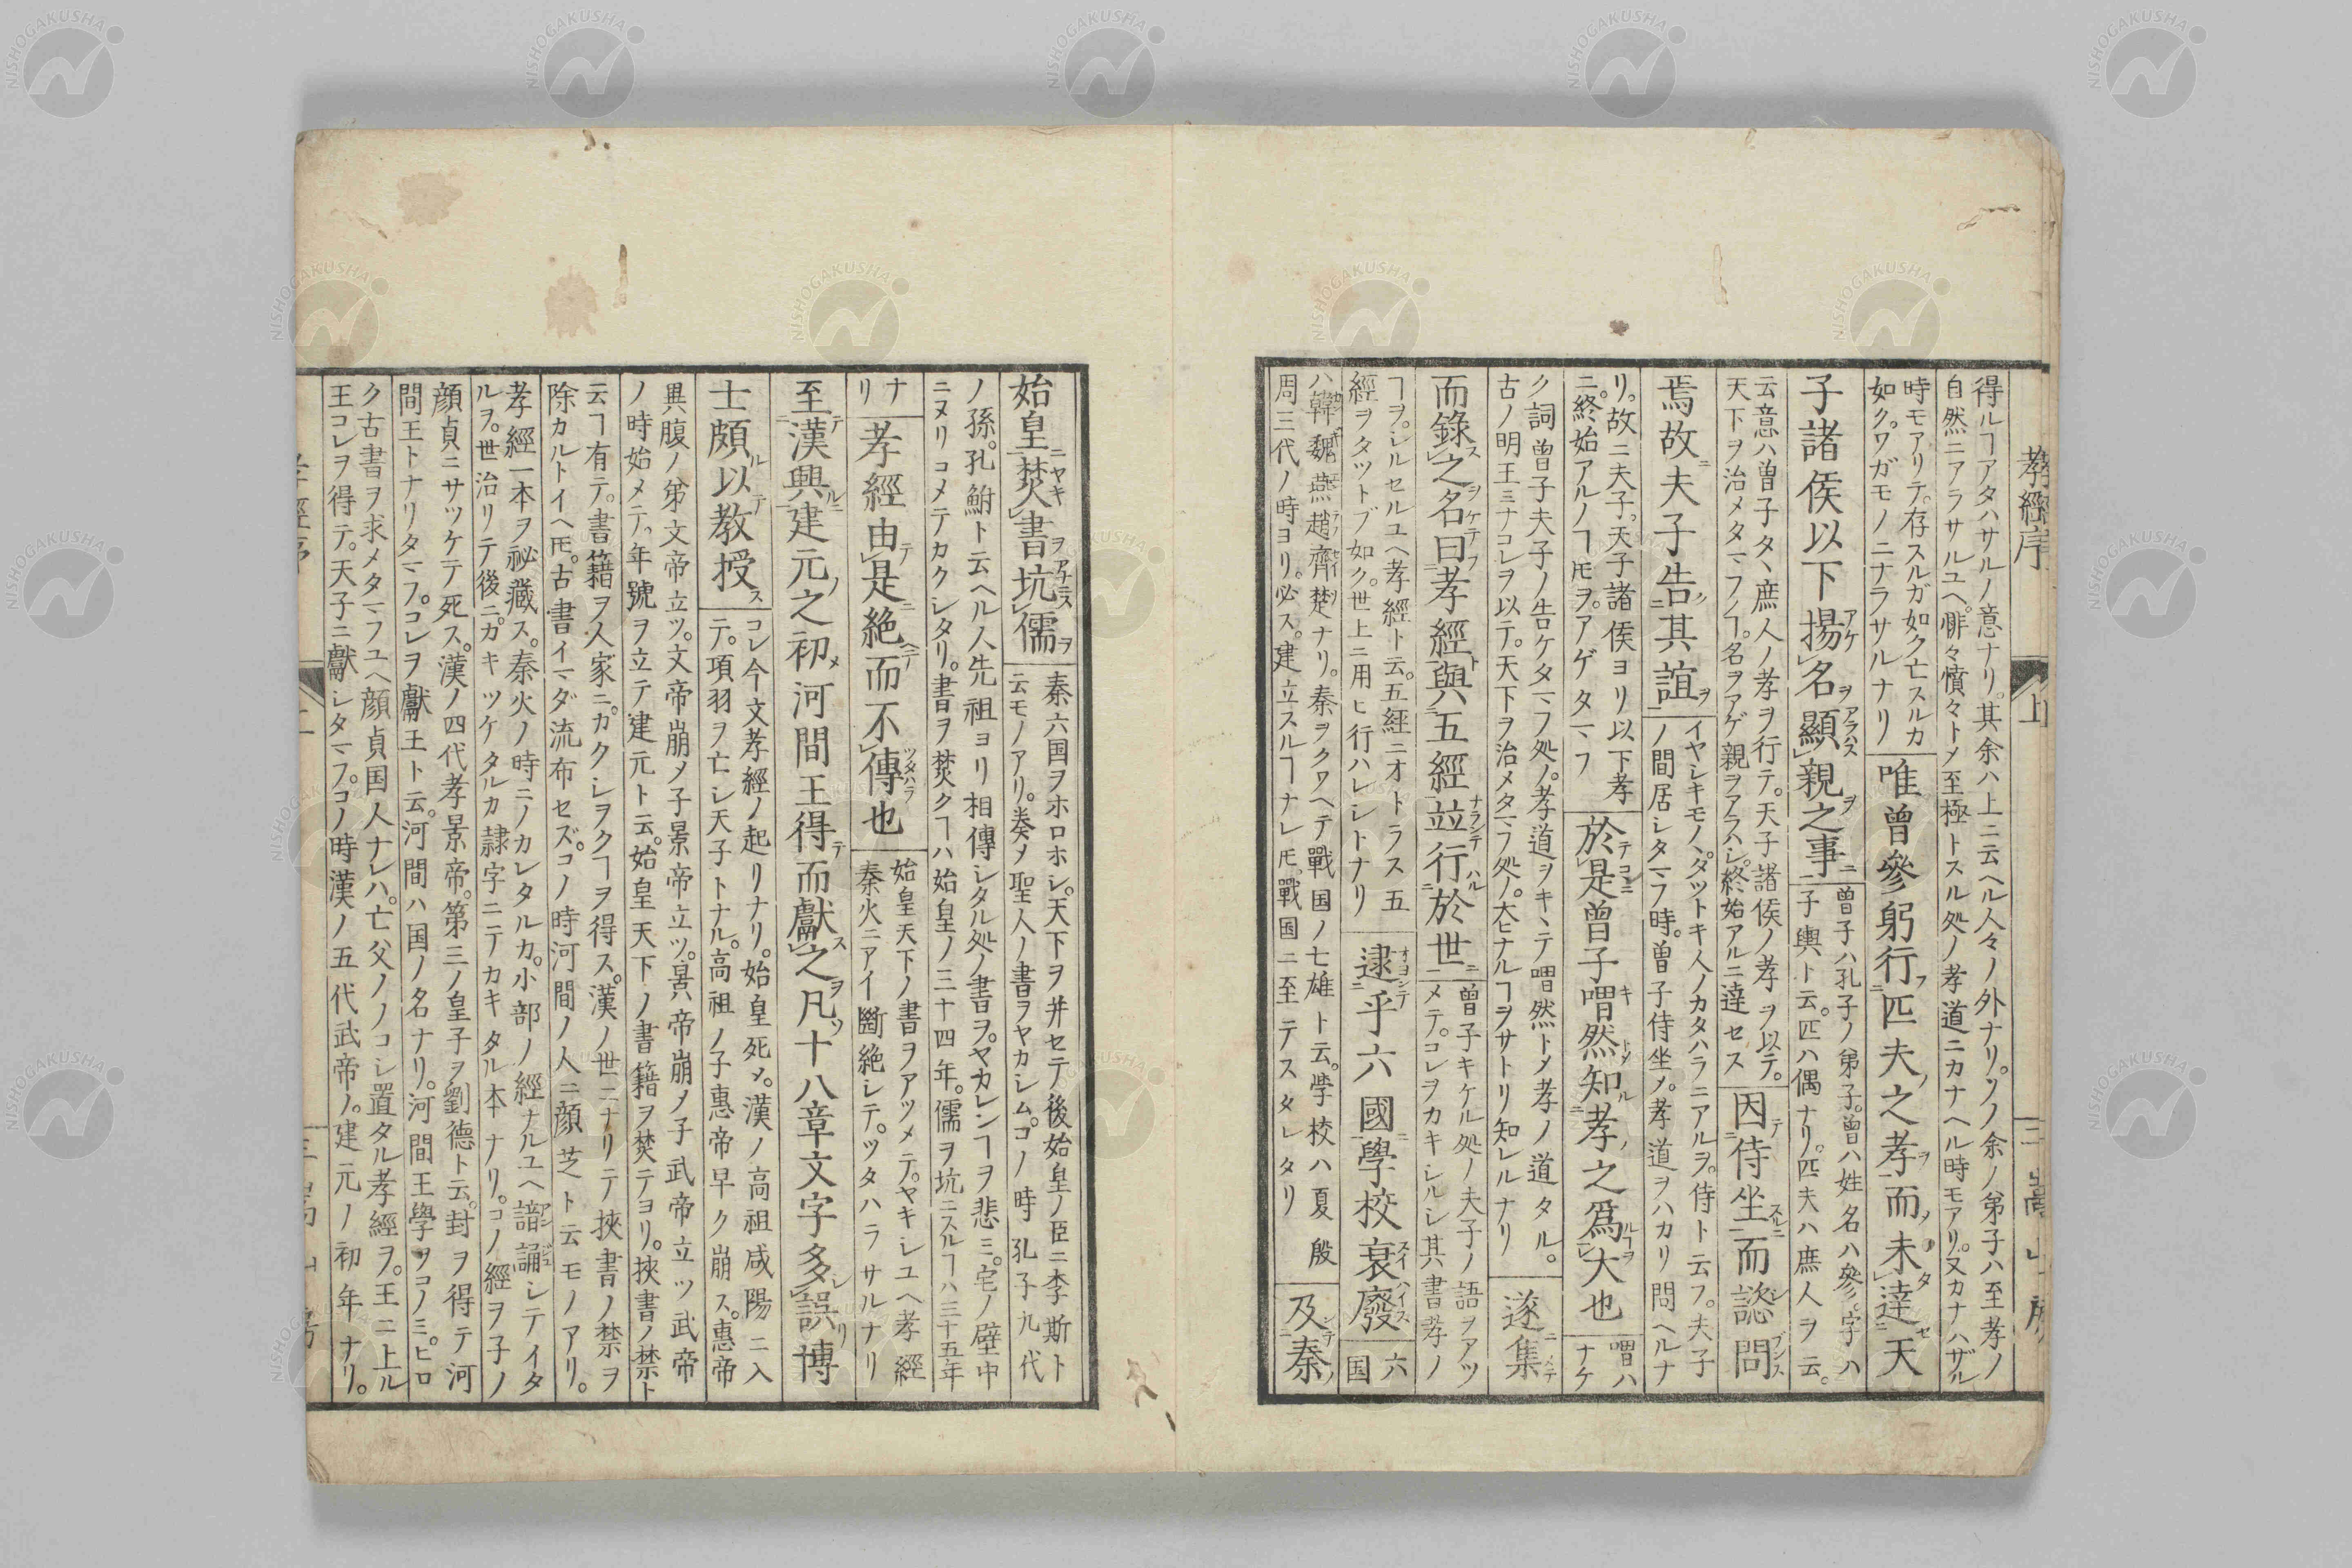 孝經序
上
得ルヿアタハサルノ意ナリ。其余ハ上ニ云ヘル人々ノ外ナリ。ソノ余ノ弟子ハ至孝ノ
自然ニアラサルユヘ。悱々憤々トメ至極トスル処ノ孝道ニカナヘル時モアリ。又カナハザル
時モアリテ。存スルガ如ク亡スルカ
如ク。ワガモノニナラサルナリ
唯曾參躬行匹夫之孝而未達天
子諸侯以下揚名顯親之事
曾子ハ孔子ノ弟子。曾ハ姓名ハ參。字ハ
子輿ト云。匹ハ偶ナリ。匹夫ハ庶人ヲ云。
云意ハ曾子タヽ庶人ノ孝ヲ行テ。天子諸侯ノ孝ヲ以テ。
天下ヲ治メタマフヿ。名ヲアゲ親ヲアラハシ。終始アルニ達セス
因侍坐而諮問
焉故夫子告其誼
イヤシキモノ、ダツトキ人ノカタハラニアルヲ。侍ト云フ。夫子
ノ間居シタマフ時。曾子侍坐メ。孝道ヲハカリ問ヘルナ
リ。故ニ夫子。天子諸侯ヨリ以下孝
ニ。終始アルノヿ𪜈ヲ。アゲタマフ
於是曾子喟然知孝之爲大也
喟ハ
ナケ
ク詞曾子夫子ノ告ケタマフ処ノ。孝道ヲキヽテ喟然トメ孝ノ道タル。
古ノ明王ミナコレヲ以テ。天下ヲ治メタマフ処ノ。大ヒナルヿヲサトリ知レルナリ
遂集
而錄之名曰孝經與五經竝行於世
曾子キケル処ノ夫子ノ語ヲアツ
メテ。コレヲカキシルシ其書孝ノ
ヿヲ。シルセルユヘ孝經ト云。五經ニオトラス五
經ヲタツトブ如ク。世上ニ用ヒ行ハレシトナリ
逮乎六國學校衰廢
六
国
ハ韓魏燕趙齊楚ナリ。秦ヲクワヘテ戰国ノ七雄ト云。學校ハ夏殷
周三代ノ時ヨリ。必ス。建立スルヿナレ𪜈。戰国ニ至テスタレタリ
及秦
始皇焚書坑儒
秦六国ヲホロホシ。天下ヲ并セテ後始皇ノ臣ニ李斯ト
云モノアリ。奏メ聖人ノ書ヲヤカシム。コノ時孔子九代
ノ孫。孔鮒ト云ヘル人先祖ヨリ相傳シタル処ノ書ヲ。ヤカレンヿヲ悲ミ。宅ノ壁中
ニヌリコメテカクレタリ。書ヲ焚クヿハ始皇ノ三十四年。儒ヲ坑ニスルヿハ三十五年
ナ
リ
孝經由是絶而不傳也
始皇天下ノ書ヲアツメテ。ヤキシユヘ孝經
秦火ニアイ斷絶シテ。ツタハラサルナリ
至漢興建元之初河間王得而獻之凡十八章文字多誤博
士頗以教授
コレ今文孝經ノ起リナリ。始皇死メ。漢ノ高祖咸陽ニ入
テ。項羽ヲ亡シ天子トナル。高祖ノ子惠帝早ク崩ス。惠帝
異腹ノ弟文帝立ツ。文帝崩メ子景帝立ツ。景帝崩メ子武帝立ツ武帝
ノ時始メテ、年號ヲ立テ建元ト云。始皇天下ノ書籍ヲ焚テヨリ。挾書ノ禁ト
云ヿ有テ。書籍ヲ人家ニ。カクシヲクヿヲ得ス。漢ノ世ニナリテ挾書ノ禁ヲ
除カルトイヘ𪜈。古書イマダ流布セズ。コノ時河間ノ人ニ顔芝ト云モノアリ。
孝經一本ヲ祕藏ス。秦火ノ時ニノカレタルカ。小部ノ經ナルユヘ諳誦シテイタ
ルヲ。世治リテ後ニ。ガキツケタルカ隷字ニテカキタル本ナリ。コノ經ヲ子ノ
顔貞ニサツケテ死ス。漢ノ四代孝景帝。第三ノ皇子ヲ劉德ト云。封ヲ得テ河
間王トナリタマフ。コレヲ獻王ト云。河間ハ国ノ名ナリ。河間王學ヲコノミ。ヒロ
ク古書ヲ求メタマフユヘ顔貞国人ナレハ。亡父ノノコシ置タル孝經ヲ。王ニ上ル
王コレヲ得テ。天子ニ獻シタマフ。コノ時漢ノ五代武帝ノ。建元ノ初年ナリ。